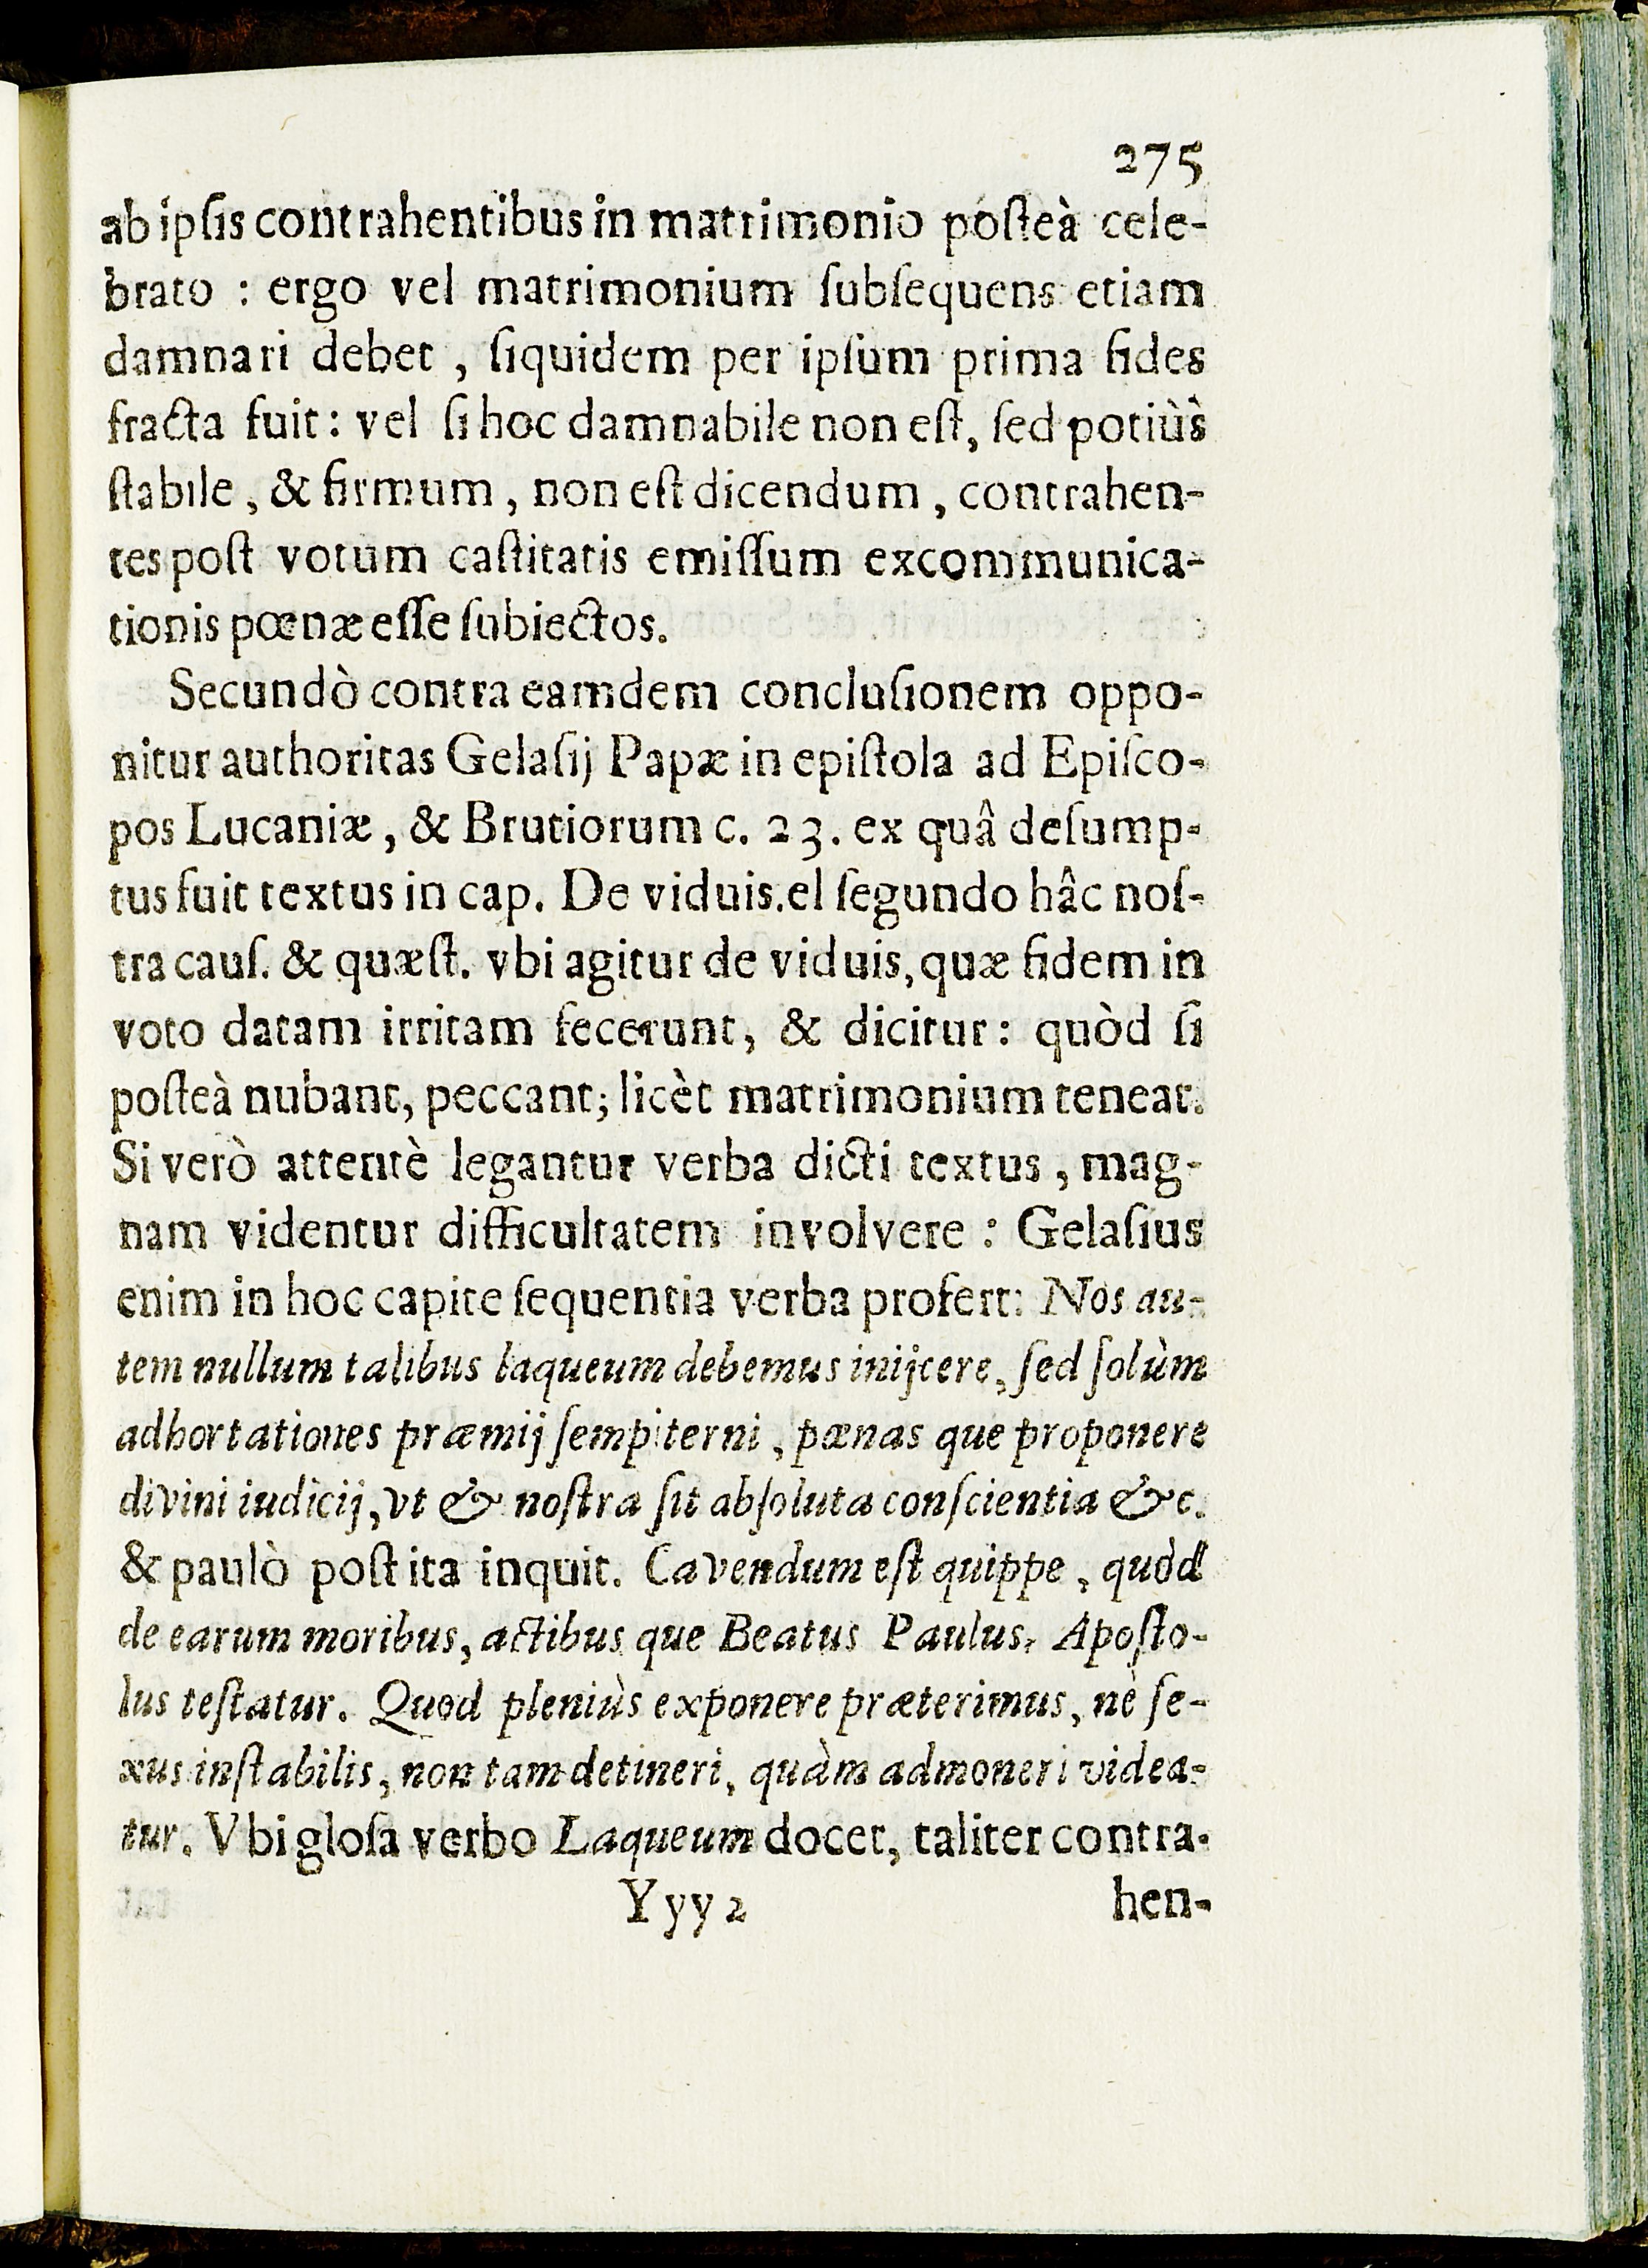 275
ab ipſis contrahentibus in matrimonio poſteà cele-
brato : ergo vel matrimonium ſubſequens etiam
damnari debet , ſiquidem per ipſum prima fides
fracta fuit : vel ſi hoc damnabile non eſt, ſed potiùs
ſtabile , & firmum , non eſt dicendum , contrahen-
tes poſt votum caſtitatis emiſſum excommunica-
tionis pœnæ eſſe ſubiectos.
Secundò contra eamdem concluſionem oppo-
nitur authoritas Gelaſij Papæ in epiſtola ad Epiſco-
pos Lucaniæ , & Brutiorum c. 23. ex quâ deſump-
tus fuit textus in cap. De viduis. el ſegundo hâc noſ-
tra cauſ. & quæſt. vbi agitur de viduis, quæ fidem in
voto datam irritam fecerunt, & dicitur : quòd ſi
poſteà nubant, peccant; licèt matrimonium teneat.
Si verò attentè legantur verba dicti textus , mag-
nam videntur difficultatem involvere : Gelaſius
enim in hoc capite ſequentia verba profert: Nos au-
tem nullum talibus laqueum debemus inijcere, ſed ſolùm
adhortationes præmij ſempiterni , pœnas que proponere
divini iudicij, vt & noſtra ſit abſoluta conſcientia &c.
& paulò poſt ita inquit. Cavendum eſt quippe , quòd
de earum moribus, actibus que Beatus Paulus, Apoſto-
lus teſtatur. Quod pleniùs exponere præterimus, nè ſe-
xus inſtabilis, non tam detineri, quàm admoneri videa-
tur. Vbi gloſa verbo Laqueum docet, taliter contra-
Yyy 2 hen-